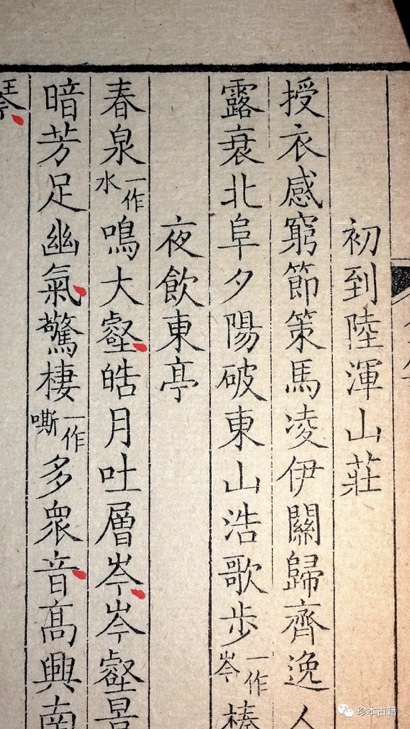 初到陸渾山莊
授衣感窮節策馬凌伊關歸齊逸人
露衰北阜夕陽破東山浩歌步一作岑榛
夜飲東亭
春泉一作水鳴大壑皓月吐層岑岑壑景
暗芳足幽氣驚棲一作嘶多衆音高興南
琴
珍本古籍